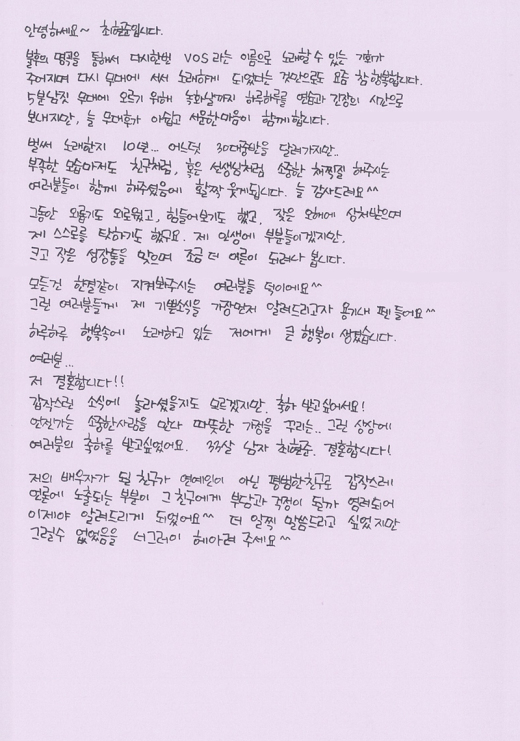 안녕하세요~ 최현준입니다.
불후의 명곡을 통해서 다시한번 VOS 라는 이름으로 노래할 수 있는 기회가
주어지며 다시 무대에 서서 노래하게 되었다는 것만으로도 요즘 참 행복합니다.
5분남짓 무대에 오르기 위해 녹화날까지 하루하루를 연습과 긴장의 시간으로
보내지만, 늘 무대후가 아쉽고 서운한마음이 함께합니다.
벌써 노래한지 10년... 어느덧 30대중반을 달려가지만..
부족한 모습마저도 친구처럼, 혹은 선생님처럼 소중한 채찍질 해주시는
여러분들이 함께 해주셨음에 활짝 웃게됩니다. 늘 감사드려요^^
그동안 외롭기도 외로웠고, 힘들어보기도 했고, 잦은 오해에 상처받으며
제 스스로를 탓하기도 했구요. 제 인생에 부분들이겠지만,
크고 작은 성장통을 맞으며 조금 더 어른이 되려나 봅니다.
모든건 한결같이 지켜봐주시는 여러분들 덕이에요^^
그런 여러분들께 제 기쁜소식을 가장먼저 알려드리고자 용기내 펜 들어요^^
하루하루 행복속에 노래하고 있는 저에게 큰 행복이 생겼습니다.
여러분...
저 결혼합니다!!
갑작스런 소식에 놀라셨을지도 모르겠지만, 축하 받고싶어서요!
언젠가는 소중한사람을 만나 따뜻한 가정을 꾸리는.. 그런 상상에
여러분의 축하를 받고싶었어요. 33살 남자 최현준. 결혼합니다!
저의 배우자가 될 친구가 연예인이 아닌 평범한친구로 갑작스레
언론에 노출되는 부분이 그 친구에게 부담과 걱정이 될까 염려되어
이제야 알려드리게 되었어요^^ 더 일찍 말씀드리고 싶었지만
그럴수 없었음을 너그러이 헤아려 주세요^^